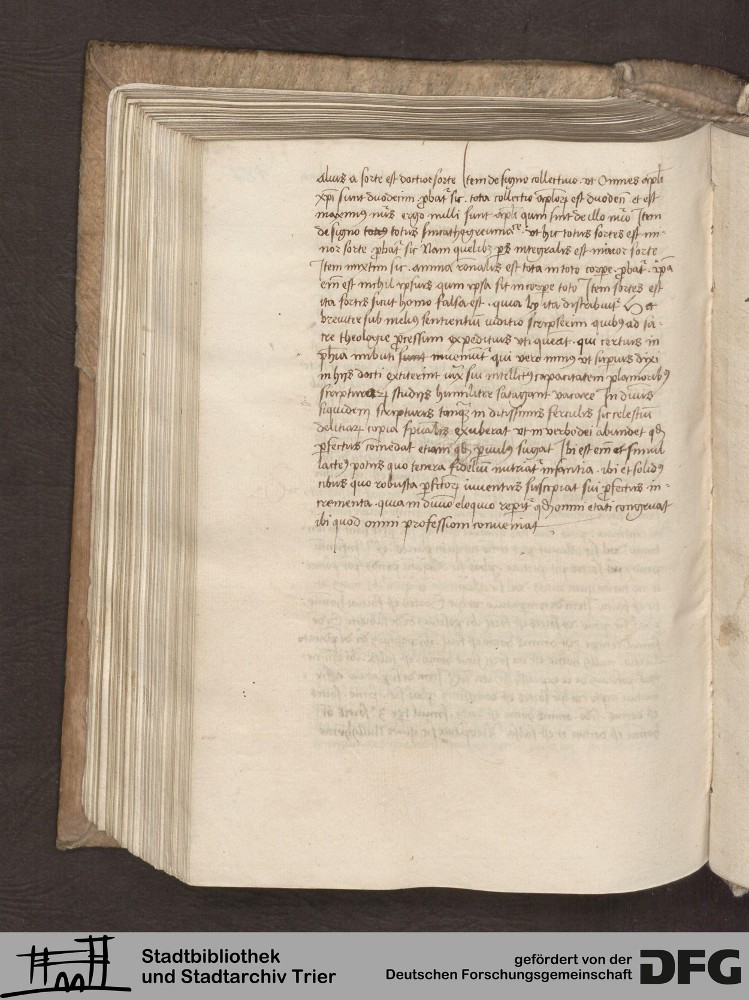 alius a sorte est doctior sorte Item de signo collectiuo ut Omnes apl̃i
xp̃i sunt duodecim ꝓbat͛ sic tota collectio apl̃oꝝ est duodeci et est
maximus nũs ergo nulli sunt apl̃i quin sint de illo nũo Item
de signo totus ut hic totus sortes est mi-
nor sorte ꝓbat͛ sic Nam quelibꝫ ꝑs integralis est minor sorte
Item mixtim sic anima rõnalis est tota in toto corpe ꝓbat͛ ip̃a
em̃ est nichil ipsius quin ipsa sit in corpe toto Item sortes est
ita fortis sicut homo falsa est quia ly ita distribuit͛ Hec
breuiter sub melius sentientiũ iuditio scripserim quibꝰ ad sa-
cre theologie ꝓcessum expeditius uti queat qui certius in
ph̃ia imbuti inueniunt͛ qui vero minꝰ ut sepius dixi
in hijs docti extiterint iux̃ sui intellectꝰ capacitatem planioribꝰ
scripturaꝝ studijs humiliter satagant vacare In diuis
siquidem scripturis tanqꝫ in ditissimis ferculis sic celestiũ
delitiaꝝ copia sp̃ualis exuberat ut in verbo dei abundet qd̃
ꝑfectus comedat etiam qd̃ ꝑuulus sugat Ibi est em̃ et simul
lacteꝰ potus quo tenera fideliũ nutriat͛ infantia ibi et solidꝰ
cibus quo robusta ꝑfectoꝝ iuuentus suscipiat sui ꝓfectus in-
crementa quia in diuio eloquio reperit͛ qd̃ omni etati congruat
ibi quod omni professioni conueniat
Stadtbibliothek
und Stadtarchiv Trier
gefördert von der
Deutschen Forschungsgemeinschaft
DFG